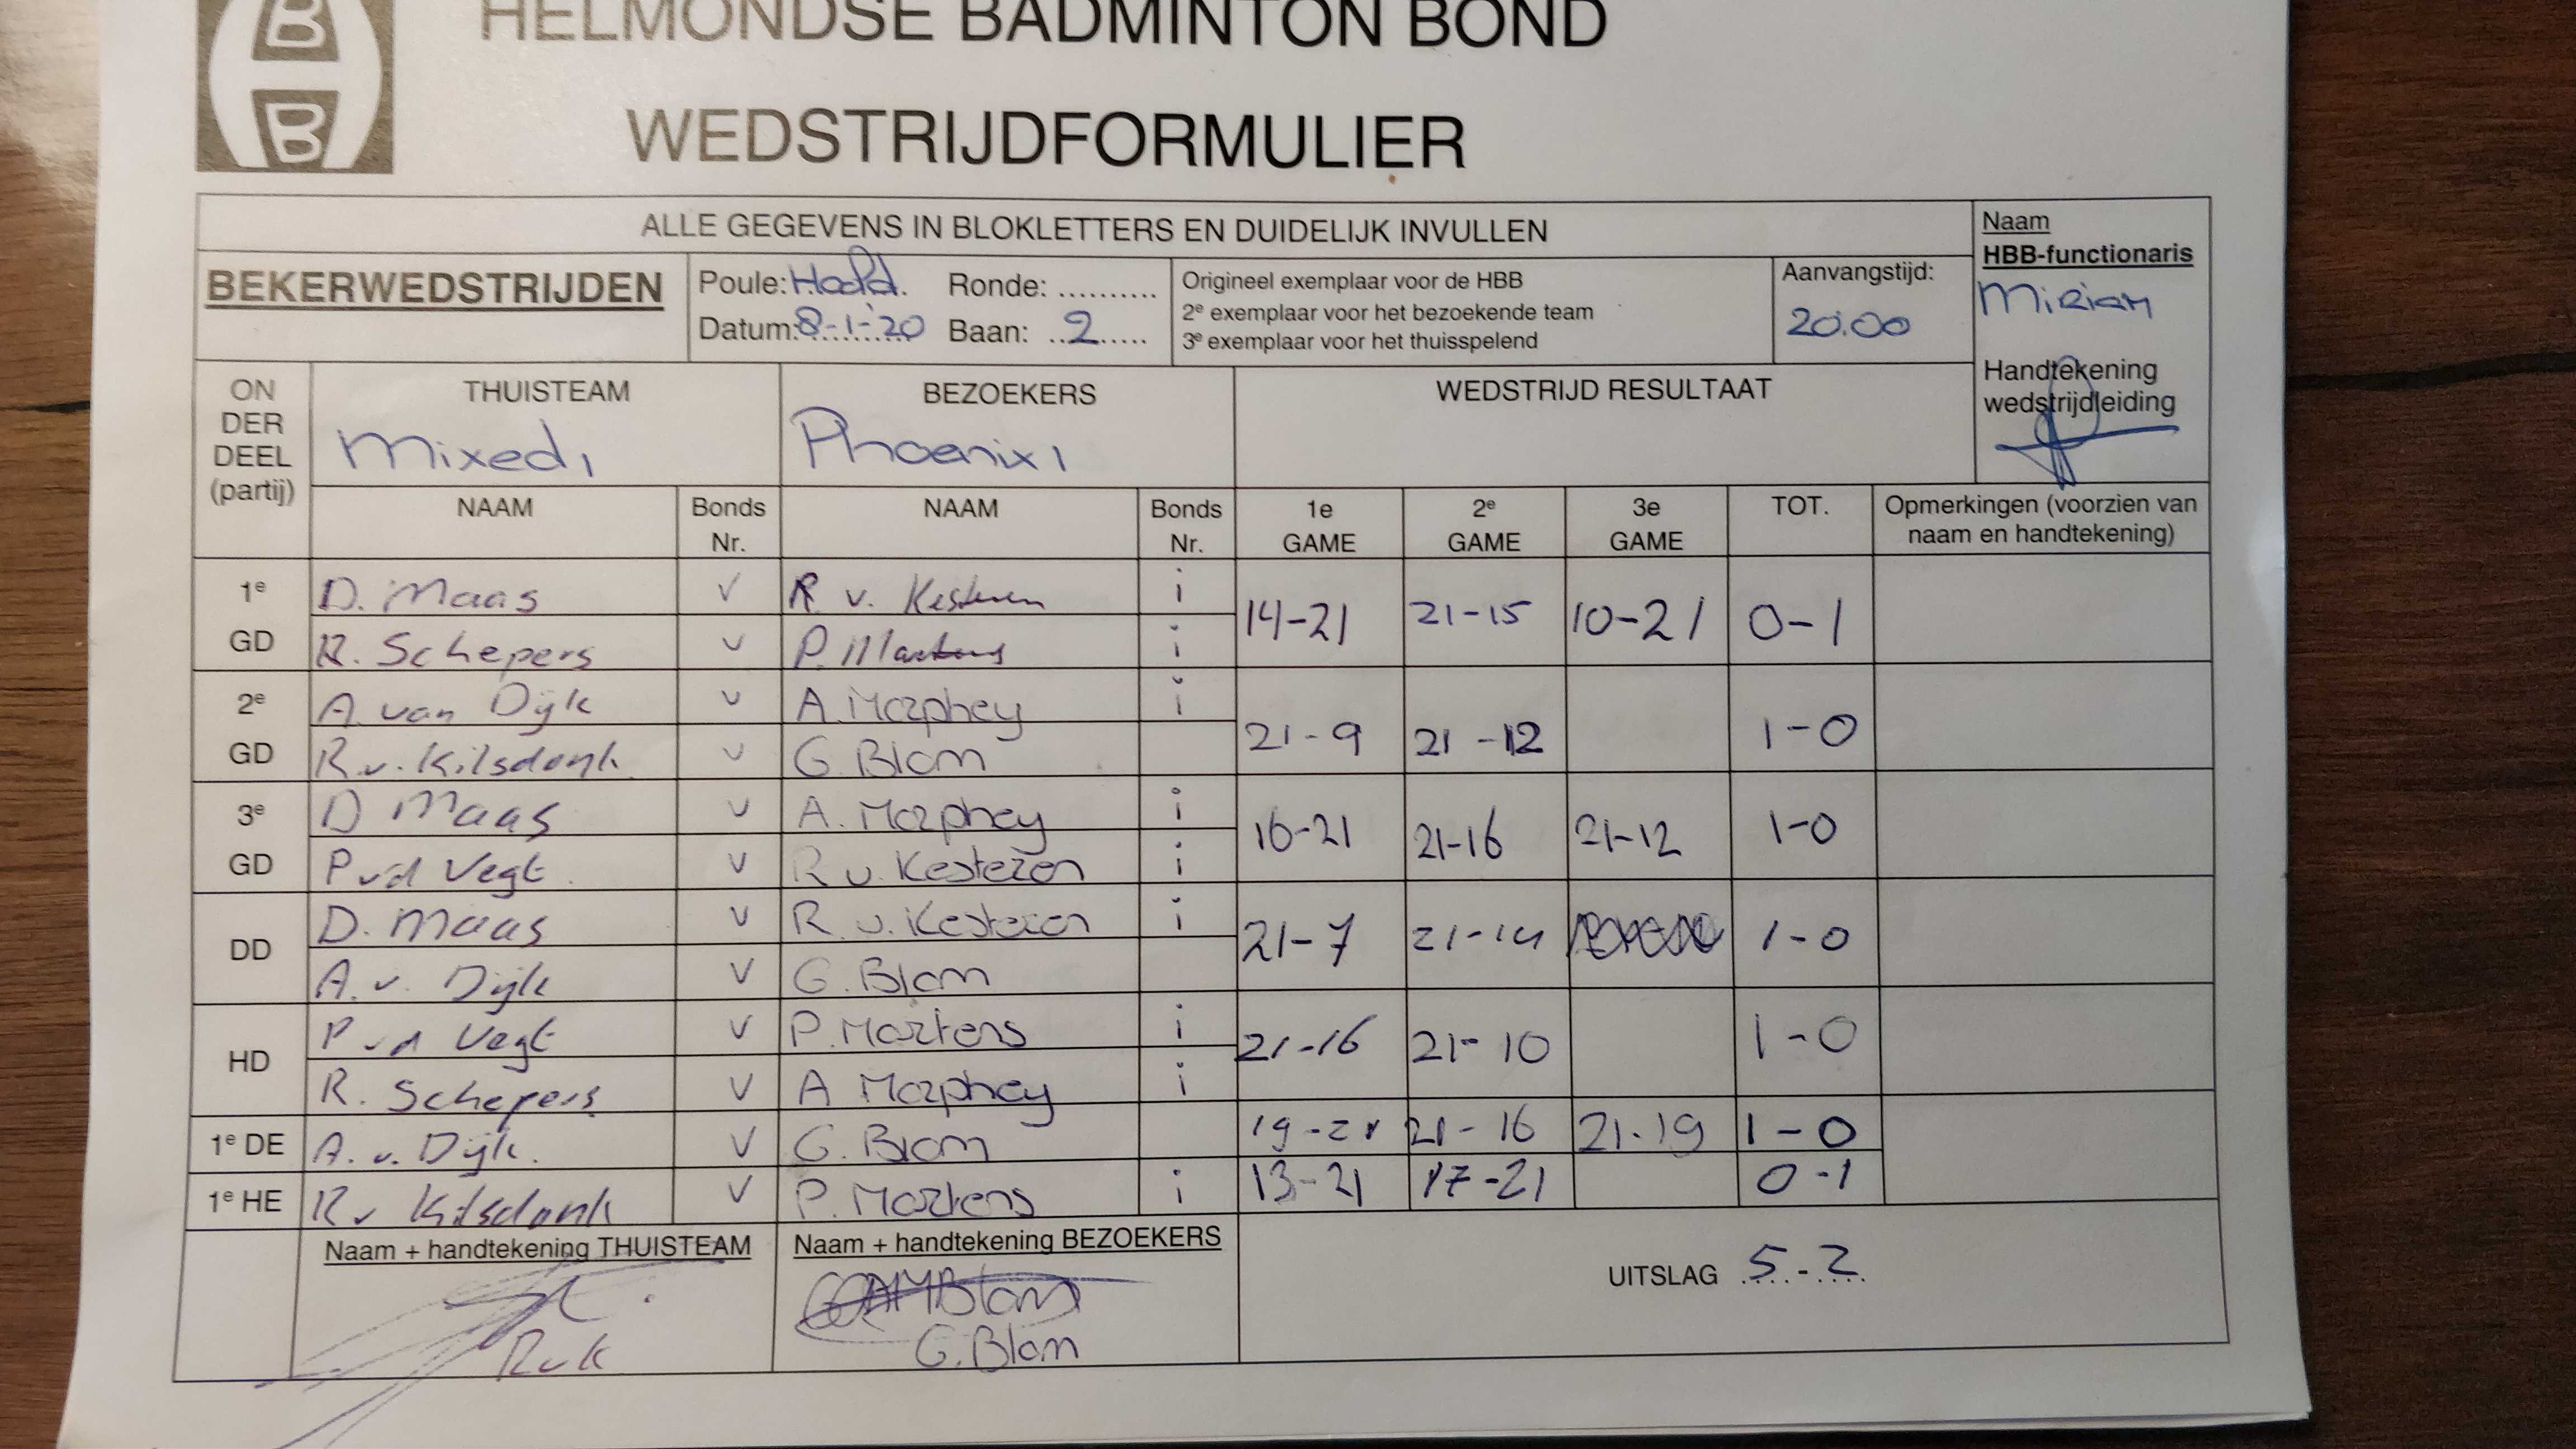 B
B
HELMONDSE BADMINTON BOND
WEDSTRIJDFORMULIER
ALLE GEGEVENS IN BLOKLETTERS EN DUIDELIJK INVULLEN
Naam
HBB-functionaris
Miriam
BEKERWEDSTRIJDEN
Poule: Hoofd. Ronde: ..........
Datum: 8-1-'20 Baan: ..2.....
Origineel exemplaar voor de HBB
2e exemplaar voor het bezoekende team
3e exemplaar voor het thuisspelend
Aanvangstijd:
20.00
Handtekening
wedstrijdleiding
ON
DER
DEEL
(partij)
THUISTEAM
Mixed 1
BEZOEKERS
Phoenix 1
WEDSTRIJD RESULTAAT
NAAM Bonds Nr. NAAM Bonds Nr. 1e GAME 2e GAME 3e GAME TOT. Opmerkingen (voorzien van naam en handtekening)
1e D. Maas v R v. Kesteren i
14-21 21-15 10-21 0-1
GD R. Schepers v P. Martens i
2e A. van Dijk v A. Morphey i
21-9 21-12 1-0
GD R.v. Kilsdonk v G. Blom
3e D Maas v A. Morphey i
16-21 21-16 21-12 1-0
GD P vd Vegt v R v. Kesteren i
DD D. Maas v R. v. Kesteren i
21-7 21-14 1-0
A. v. Dijk v G. Blom
HD P vd Vegt v P. Martens i
21-16 21-10 1-0
R. Schepers v A Morphey i
1e DE A. v. Dijk. v G. Blom 19-21 21-16 21-19 1-0
1e HE R v Kilsdonk v P. Martens i 13-21 17-21 0-1
Naam + handtekening THUISTEAM
RvK
Naam + handtekening BEZOEKERS
G. Blom
UITSLAG 5-2